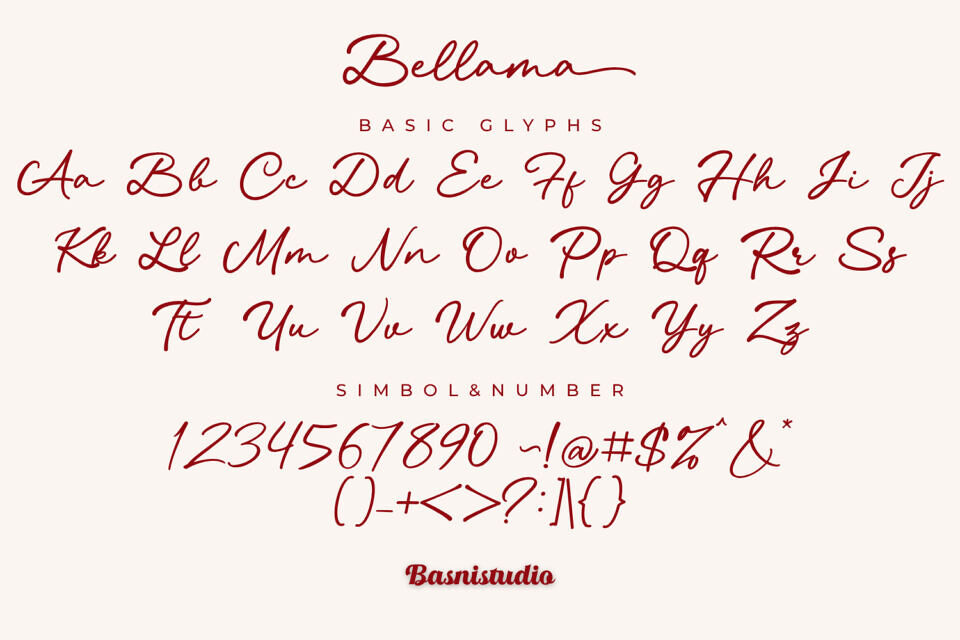 Bellama
BASIC GLYPHS
Aa Bb Cc Dd Ee Ff Gg Hh Ii Jj
Kk Ll Mm Nn Oo Pp Qq Rr Ss
Tt Uu Vv Ww Xx Yy Zz
SIMBOL&NUMBER
1234567890 ~!@#$%^&*
()_+<>?:]|\{}
Basnistudio